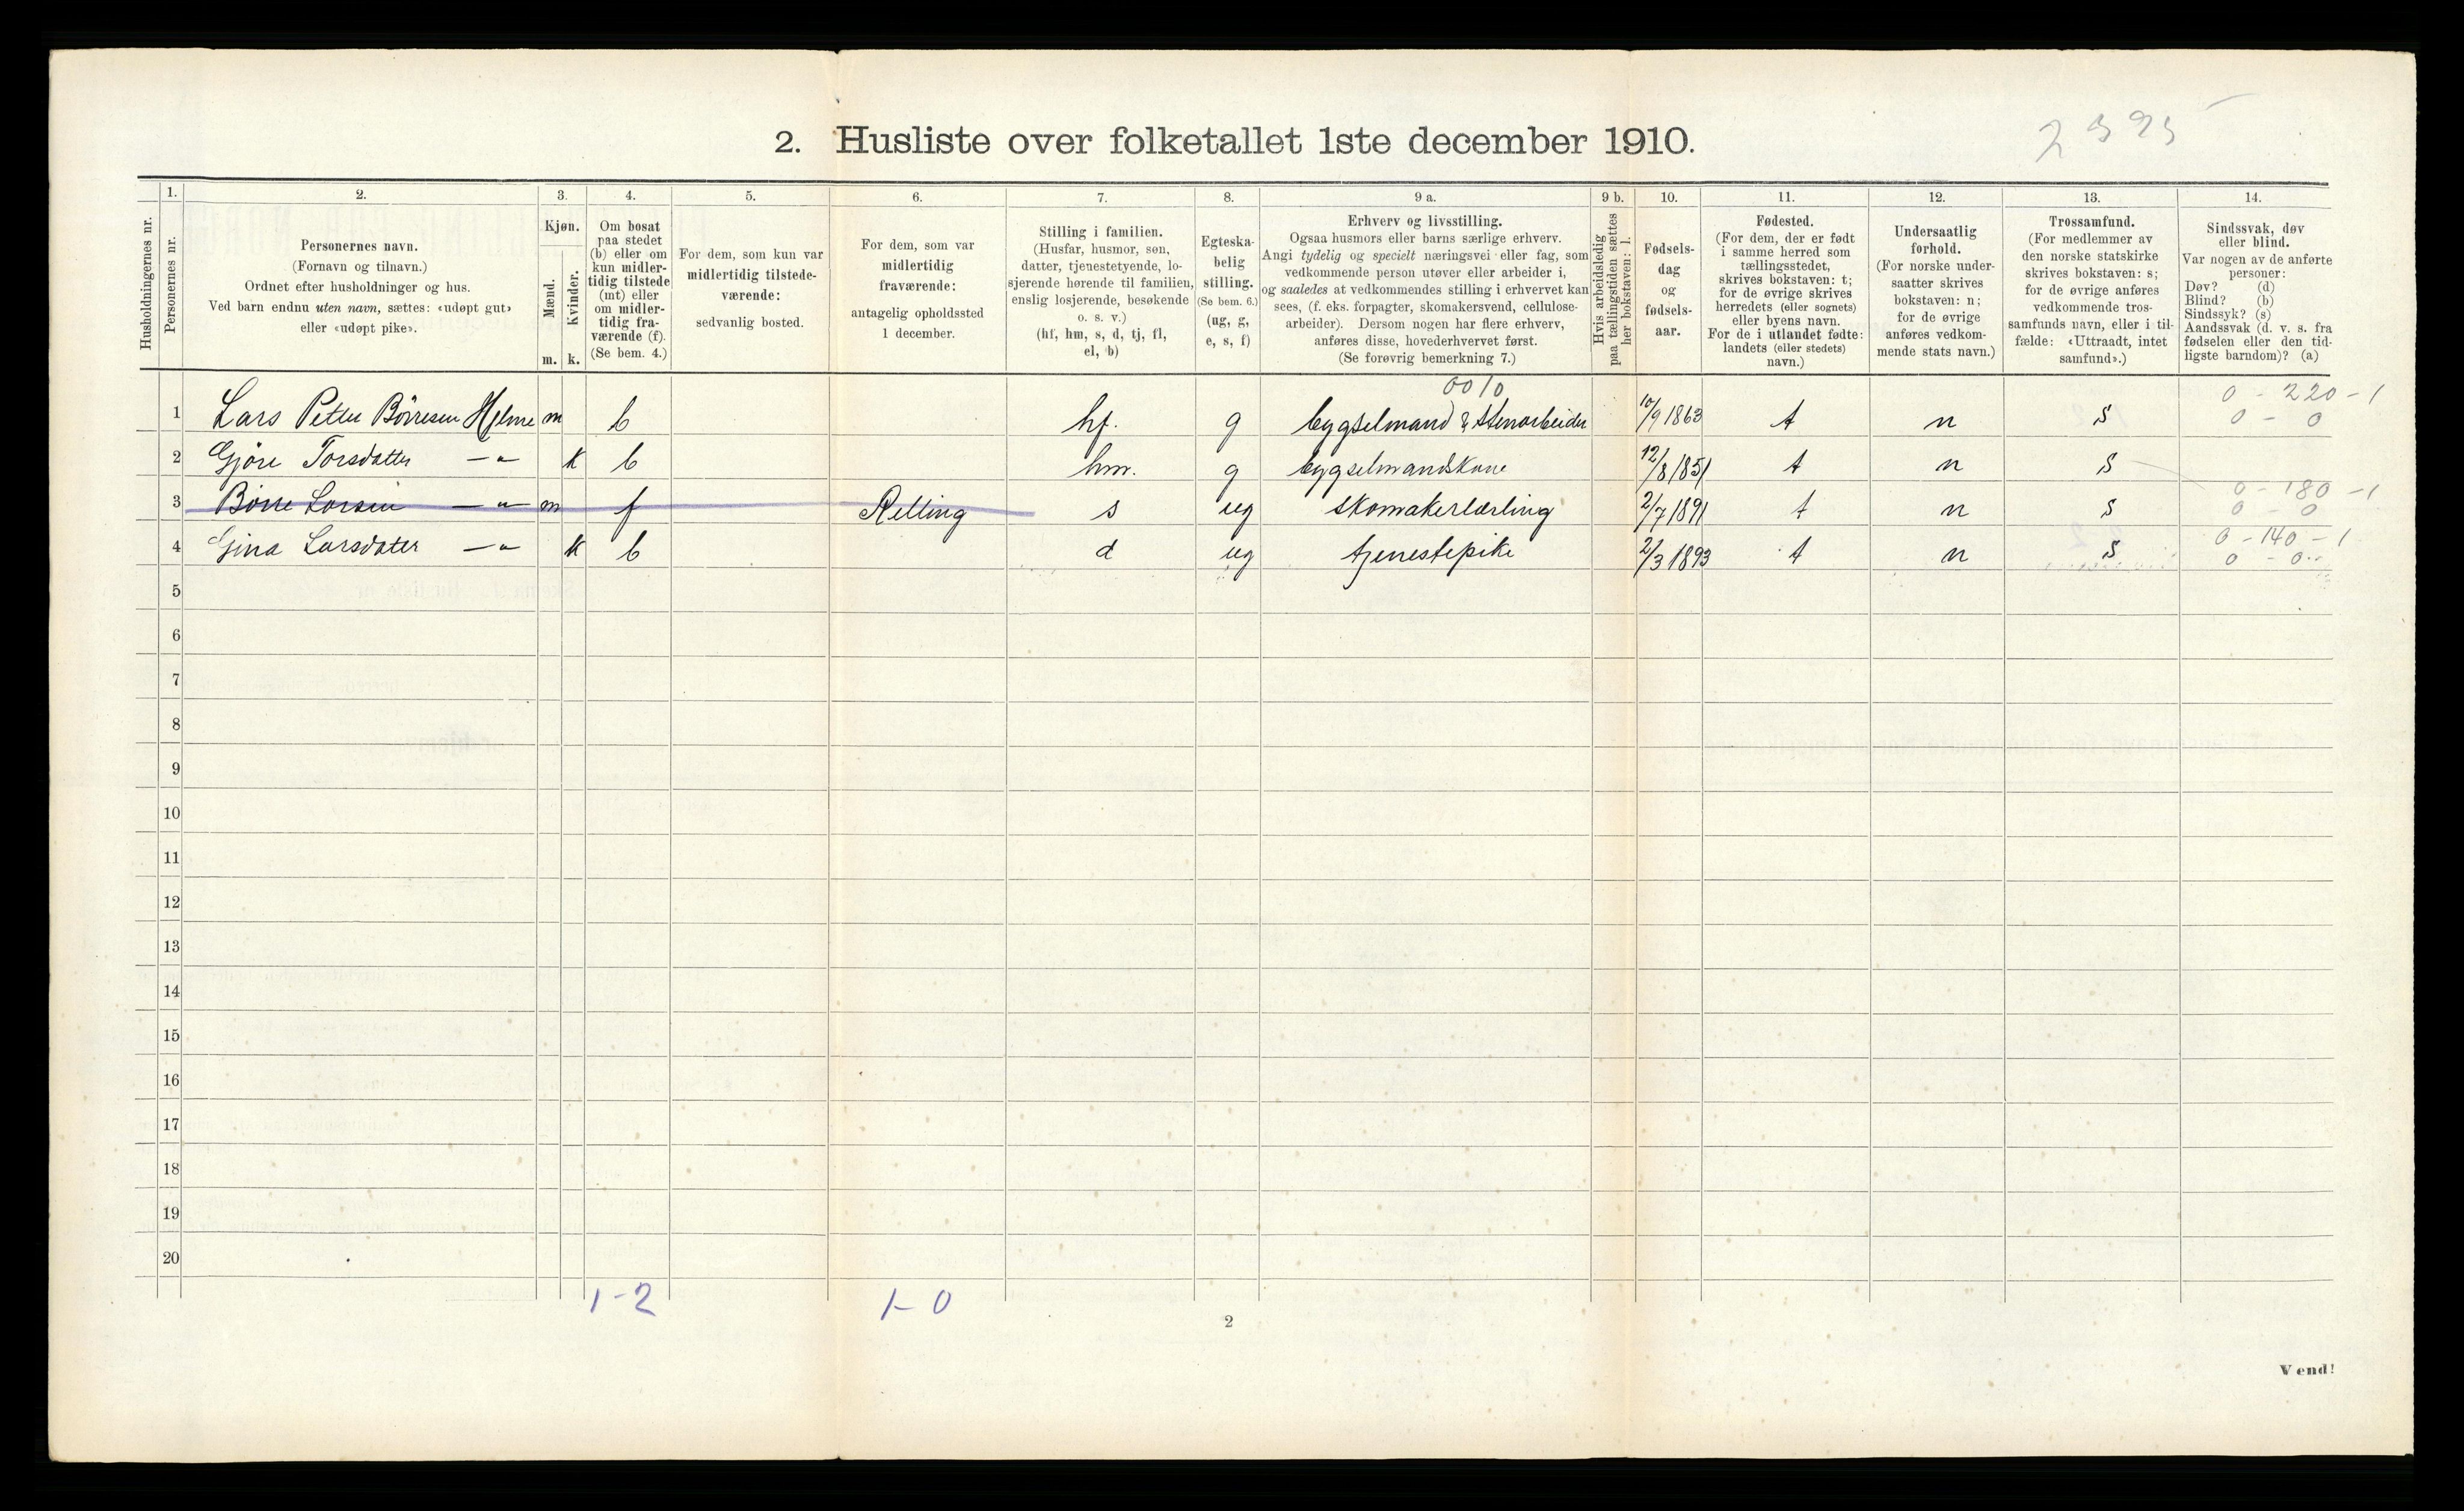 2. Husliste over folketallet 1ste december 1910.
2395
1. 2. 3. 4. 5. 6. 7. 8. 9 a. 9 b. 10. 11. 12. 13. 14.
Husholdningernes nr.
Personernes nr.
Personernes navn.
(Fornavn og tilnavn.)
Ordnet efter husholdninger og hus.
Ved barn endnu uten navn, sættes: «udøpt gut»
eller «udøpt pike».
Kjøn.
Mænd.
Kvinder.
m. k.
Om bosat
paa stedet
(b) eller om
kun midler-
tidig tilstede
(mt) eller
om midler-
tidig fra-
værende (f).
(Se bem. 4.)
For dem, som kun var
midlertidig tilstede-
værende:
sedvanlig bosted.
For dem, som var
midlertidig
fraværende:
antagelig opholdssted
1 december.
Stilling i familien.
(Husfar, husmor, søn,
datter, tjenestetyende, lo-
sjerende hørende til familien,
enslig losjerende, besøkende
o. s. v.)
(hf, hm, s, d, tj, fl,
el, b)
Egteska-
belig
stilling.
(Se bem. 6.)
(ug, g,
e, s, f)
Erhverv og livsstilling.
Ogsaa husmors eller barns særlige erhverv.
Angi tydelig og specielt næringsvei eller fag, som
vedkommende person utøver eller arbeider i,
og saaledes at vedkommendes stilling i erhvervet kan
sees, (f. eks. forpagter, skomakersvend, cellulose-
arbeider). Dersom nogen har flere erhverv,
anføres disse, hovederhvervet først.
(Se forøvrig bemerkning 7.)
Hvis arbeidsledig
paa tællingstiden sættes
her bokstaven: l.
Fødsels-
dag
og
fødsels-
aar.
Fødested.
(For dem, der er født
i samme herred som
tællingsstedet,
skrives bokstaven: t;
for de øvrige skrives
herredets (eller sognets)
eller byens navn.
For de i utlandet fødte:
landets (eller stedets)
navn.)
Undersaatlig
forhold.
(For norske under-
saatter skrives
bokstaven: n;
for de øvrige
anføres vedkom-
mende stats navn.)
Trossamfund.
(For medlemmer av
den norske statskirke
skrives bokstaven: s;
for de øvrige anføres
vedkommende tros-
samfunds navn, eller i til-
fælde: «Uttraadt, intet
samfund».)
Sindssvak, døv
eller blind.
Var nogen av de anførte
personer:
Døv? (d)
Blind? (b)
Sindssyk? (s)
Aandssvak (d. v. s. fra
fødselen eller den tid-
ligste barndom)? (a)
0010
0 - 220 - 1
1 Lars Petter Börresen Helme m b hf. g bygselmand & stenarbeider 10/9 1863 t n s 0 - 0
2 Gjöre Torsdatter —"— k b hm. g bygselmandskone 12/8 1851 t n s
0 - 180 - 1
3 Börre Larsen —"— m f Relling s ug skomakerlærling 2/7 1891 t n s 0 - 0
0 - 140 - 1
4 Gina Larsdatter —"— k b d ug tjenestepike 2/3 1893 t n s 0 - 0
5
6
7
8
9
10
11
12
13
14
15
16
17
18
19
20
1-2 1-0
2
Vend!